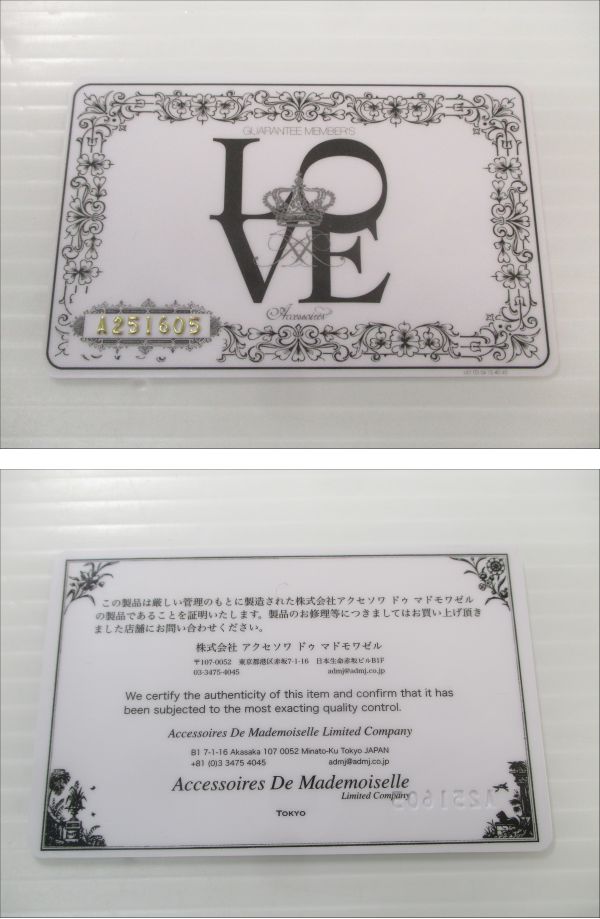 GUARANTEE MEMBER'S
LO
VE
Accessoires
A251605
この製品は厳しい管理のもとに製造された株式会社アクセソワ ドゥ マドモワゼル
の製品であることを証明いたします。製品のお修理等につきましてはお買い上げ頂き
ました店舗にお問い合わせください。
株式会社 アクセソワ ドゥ マドモワゼル
〒107-0052 東京都港区赤坂7-1-16 日本生命赤坂ビルB1F
03-3475-4045 admj@admj.co.jp
We certify the authenticity of this item and confirm that it has
been subjected to the most exacting quality control.
Accessoires De Mademoiselle Limited Company
B1 7-1-16 Akasaka 107 0052 Minato-Ku Tokyo JAPAN
+81 (0)3 3475 4045 admj@admj.co.jp
Accessoires De Mademoiselle
Limited Company
A251605
TOKYO